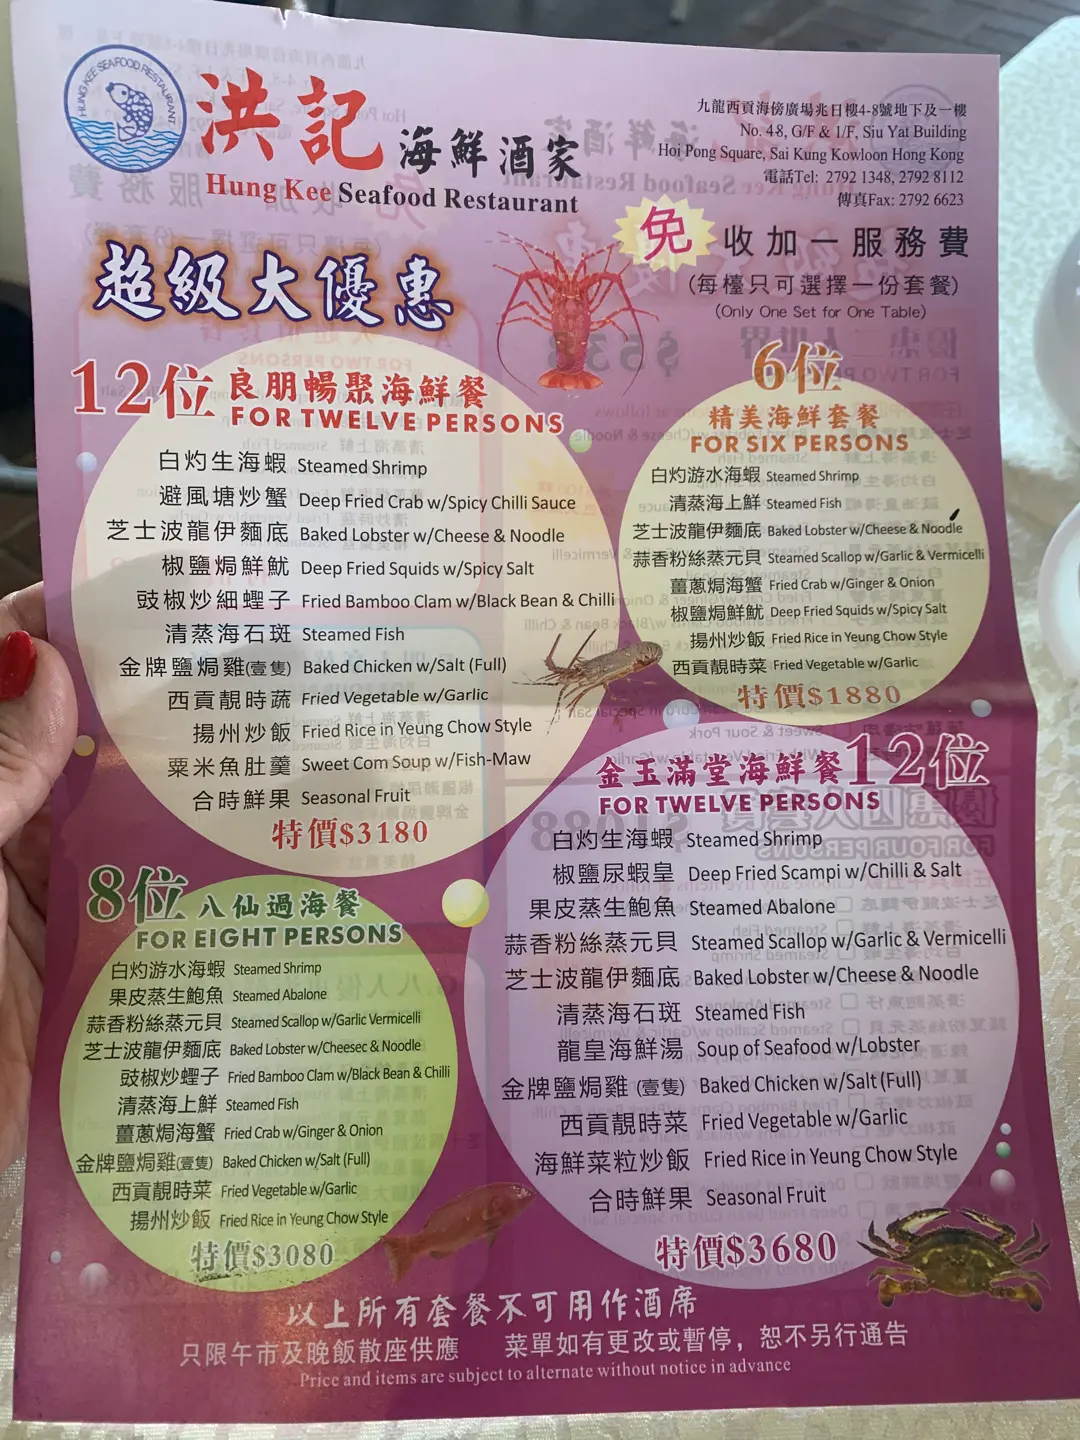 HUNG KEE SEAFOOD RESTAURANT
洪記海鮮酒家
Hung Kee Seafood Restaurant
九龍西貢海傍廣場兆日樓4-8號地下及一樓
No. 48, G/F & 1/F, Siu Yat Building
Hoi Pong Square, Sai Kung Kowloon Hong Kong
電話Tel: 2792 1348, 2792 8112
傳真Fax: 2792 6623
超級大優惠
免收加一服務費
(每檯只可選擇一份套餐)
(Only One Set for One Table)
12位 良朋暢聚海鮮餐
FOR TWELVE PERSONS
白灼生海蝦 Steamed Shrimp
避風塘炒蟹 Deep Fried Crab w/Spicy Chilli Sauce
芝士波龍伊麵底 Baked Lobster w/Cheese & Noodle
椒鹽焗鮮魷 Deep Fried Squids w/Spicy Salt
豉椒炒細蟶子 Fried Bamboo Clam w/Black Bean & Chilli
清蒸海石斑 Steamed Fish
金牌鹽焗雞(壹隻) Baked Chicken w/Salt (Full)
西貢靚時蔬 Fried Vegetable w/Garlic
揚州炒飯 Fried Rice in Yeung Chow Style
粟米魚肚羹 Sweet Corn Soup w/Fish-Maw
合時鮮果 Seasonal Fruit
特價$3180
6位
精美海鮮套餐
FOR SIX PERSONS
白灼游水海蝦 Steamed Shrimp
清蒸海上鮮 Steamed Fish
芝士波龍伊麵底 Baked Lobster w/Cheese & Noodle
蒜香粉絲蒸元貝 Steamed Scallop w/Garlic & Vermicelli
薑蔥焗海蟹 Fried Crab w/Ginger & Onion
椒鹽焗鮮魷 Deep Fried Squids w/Spicy Salt
揚州炒飯 Fried Rice in Yeung Chow Style
西貢靚時菜 Fried Vegetable w/Garlic
特價$1880
8位 八仙過海餐
FOR EIGHT PERSONS
白灼游水海蝦 Steamed Shrimp
果皮蒸生鮑魚 Steamed Abalone
蒜香粉絲蒸元貝 Steamed Scallop w/Garlic Vermicelli
芝士波龍伊麵底 Baked Lobster w/Cheesec & Noodle
豉椒炒蟶子 Fried Bamboo Clam w/Black Bean & Chilli
清蒸海上鮮 Steamed Fish
薑蔥焗海蟹 Fried Crab w/Ginger & Onion
金牌鹽焗雞(壹隻) Baked Chicken w/Salt (Full)
西貢靚時菜 Fried Vegetable w/Garlic
揚州炒飯 Fried Rice in Yeung Chow Style
特價$3080
金玉滿堂海鮮餐12位
FOR TWELVE PERSONS
白灼生海蝦 Steamed Shrimp
椒鹽尿蝦皇 Deep Fried Scampi w/Chilli & Salt
果皮蒸生鮑魚 Steamed Abalone
蒜香粉絲蒸元貝 Steamed Scallop w/Garlic & Vermicelli
芝士波龍伊麵底 Baked Lobster w/Cheese & Noodle
清蒸海石斑 Steamed Fish
龍皇海鮮湯 Soup of Seafood w/Lobster
金牌鹽焗雞(壹隻) Baked Chicken w/Salt (Full)
西貢靚時菜 Fried Vegetable w/Garlic
海鮮菜粒炒飯 Fried Rice in Yeung Chow Style
合時鮮果 Seasonal Fruit
特價$3680
以上所有套餐不可用作酒席
只限午市及晚飯散座供應 菜單如有更改或暫停，恕不另行通告
Price and items are subject to alternate without notice in advance